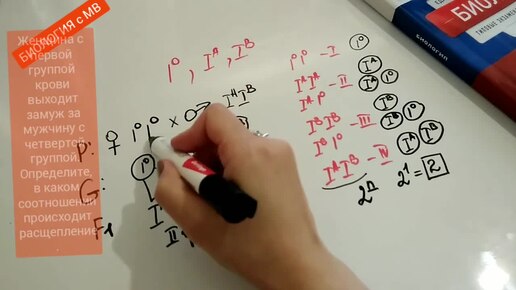 БИОЛОГИЯ с МВ
Женщина с
первой
группой
крови
выходит
замуж за
мужчину с
четвертой
группой.
Определите,
в каком
соотношении
происходит
расщепление
I⁰, Iᴬ, Iᴮ
P: ♀ I⁰I⁰ × ♂ IᴬIᴮ
G: I⁰
F₁
I⁰I⁰ – I I⁰
IᴬIᴬ – II Iᴬ
IᴬI⁰ – II Iᴬ I⁰
IᴮIᴮ – III Iᴮ
IᴮI⁰ – III Iᴮ I⁰
IᴬIᴮ – IV Iᴬ Iᴮ
2ⁿ 2¹ = 2
БИОЛОГИЯ